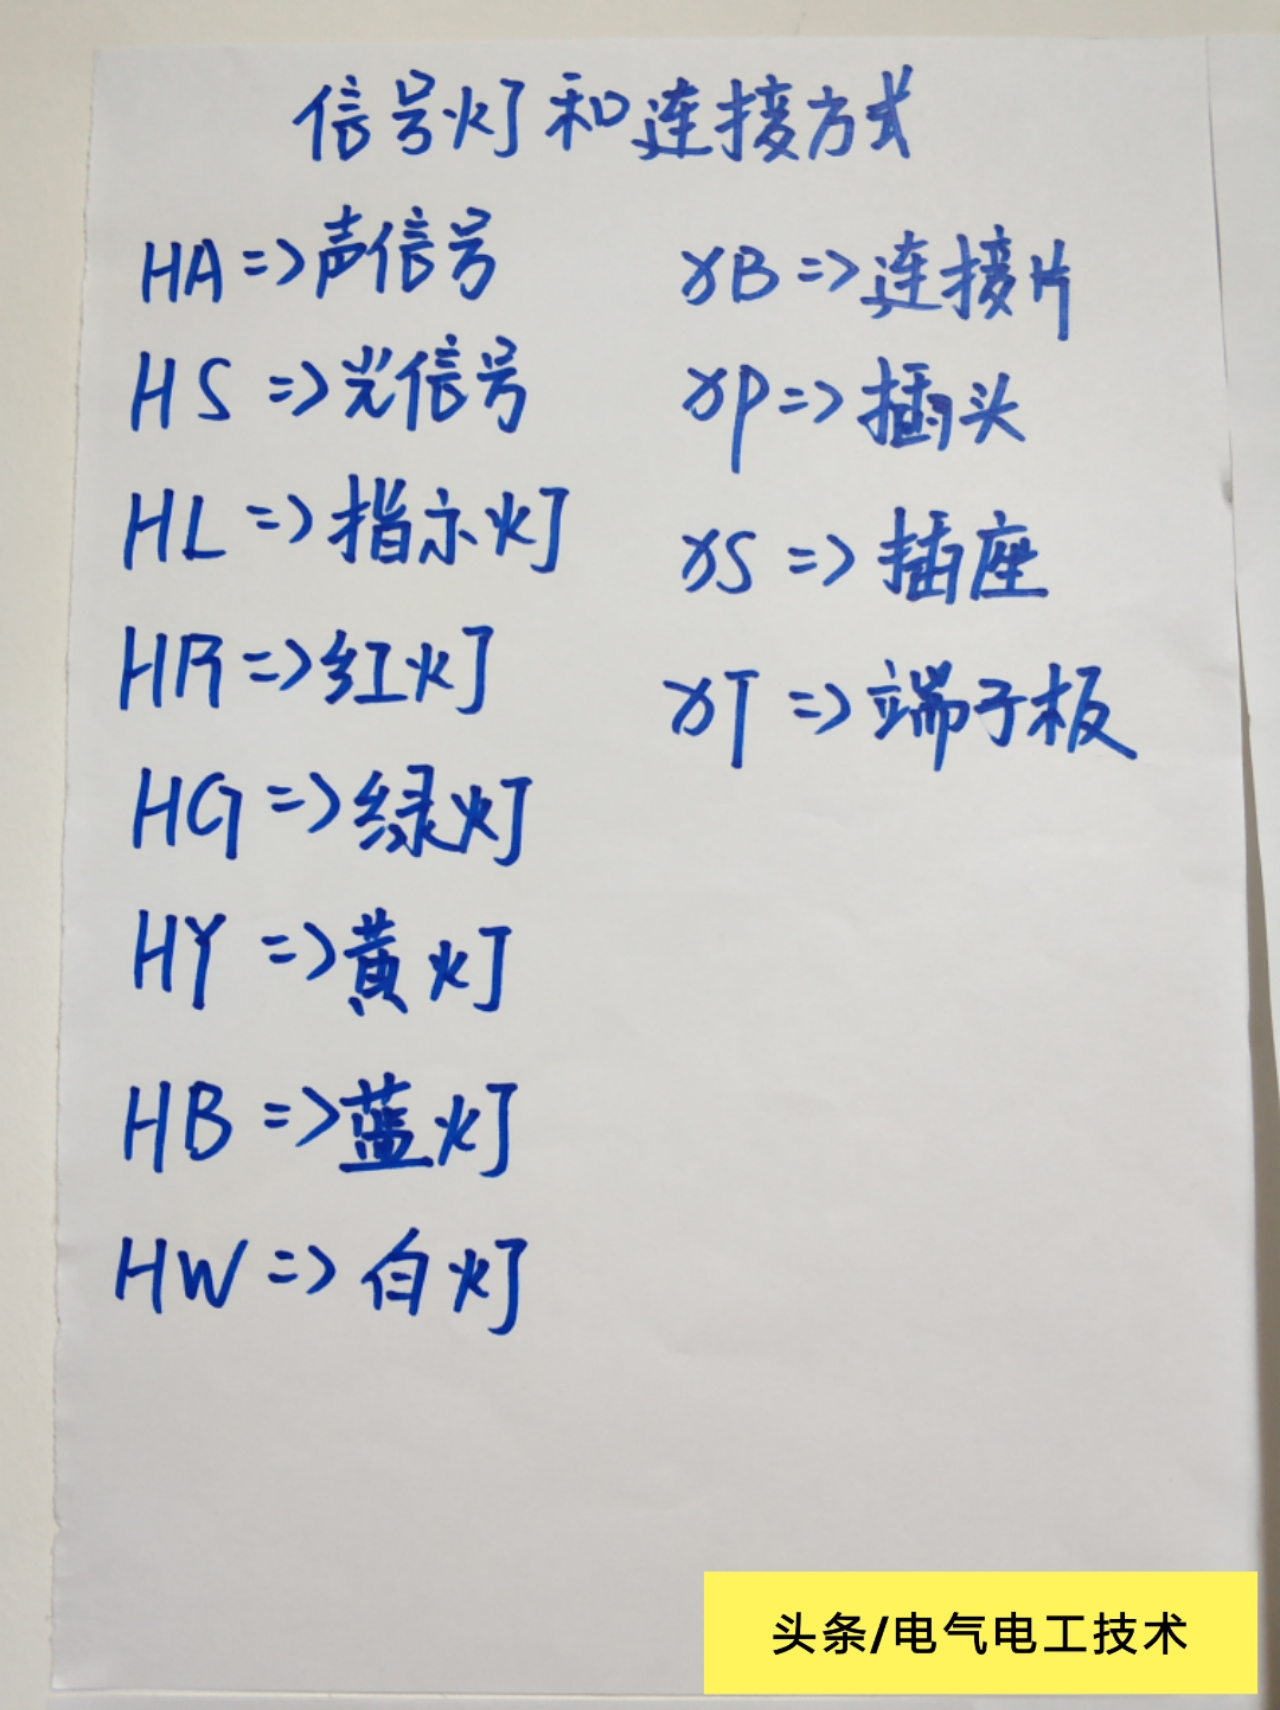 信号灯和连接方式
HA=>声信号
HS=>光信号
HL=>指示灯
HR=>红灯
HG=>绿灯
HY=>黄灯
HB=>蓝灯
HW=>白灯
XB=>连接片
XP=>插头
XS=>插座
XT=>端子板
头条/电气电工技术